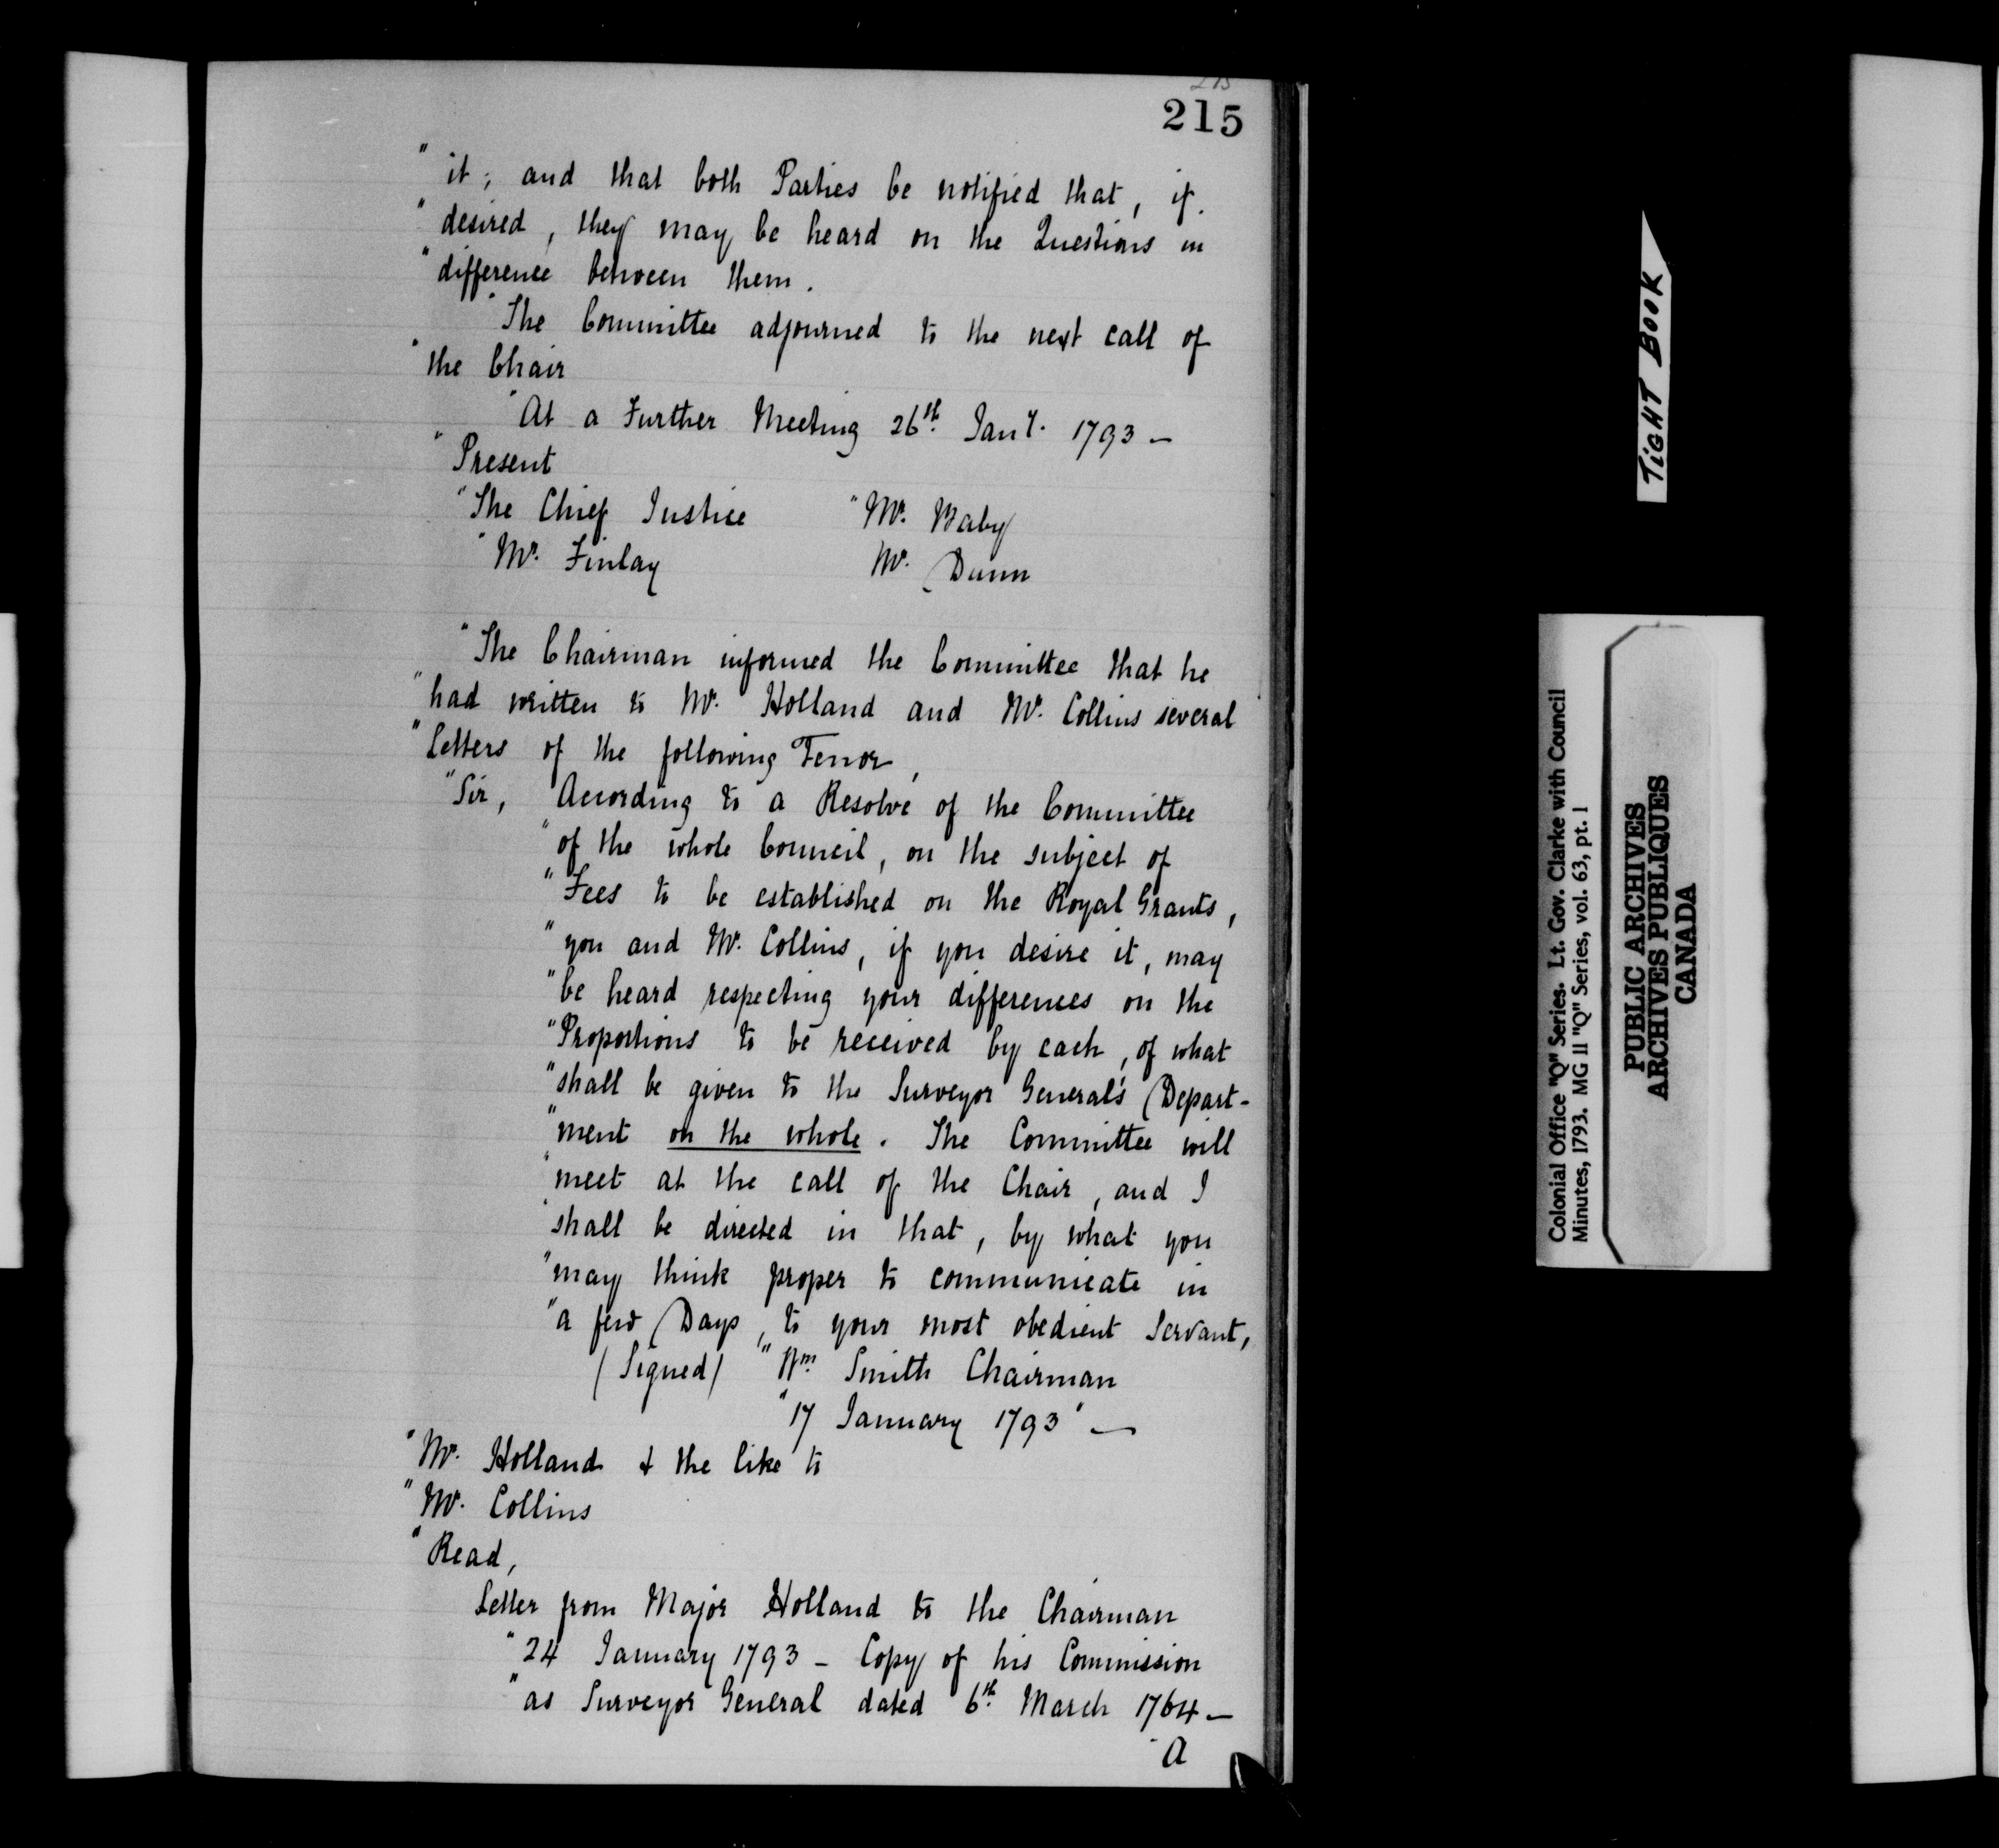 215
215
" it; and that both Parties be notified that, if
" desired, they may be heard on the Questions in
" difference between them.
" The Committee adjourned to the next call of
" the Chair
" At a Further Meeting 26th. Jany. 1793 —
" Present
" The Chief Justice " Mr. Baby
" Mr. Finlay Mr. Dunn
" The Chairman informed the Committee that he
" had written to Mr. Holland and Mr. Collins several
" Letters of the following Tenor,
" Sir, According to a Resolve of the Committee
" of the whole Council, on the subject of
" Fees to be established on the Royal Grants,
" you and Mr. Collins, if you desire it, may
" be heard respecting your differences on the
" Proportions to be received by each, of what
" shall be given to the Surveyor General's Depart-
" ment on the whole. The Committee will
" meet at the call of the Chair, and I
" shall be directed in that, by what you
" may think proper to communicate in
" a few Days, to your most obedient Servant,
(Signed) " Wm Smith Chairman
" 17 January 1793 " —
" Mr. Holland & the like to
" Mr. Collins
" Read,
Letter from Major Holland to the Chairman
" 24 January 1793 — Copy of his Commission
" as Surveyor General dated 6th. March 1764 —
" A
TIGHT BOOK
Colonial Office "Q" Series. Lt. Gov. Clarke with Council
Minutes, 1793. MG 11 "Q" Series, vol. 63, pt. 1
PUBLIC ARCHIVES
ARCHIVES PUBLIQUES
CANADA